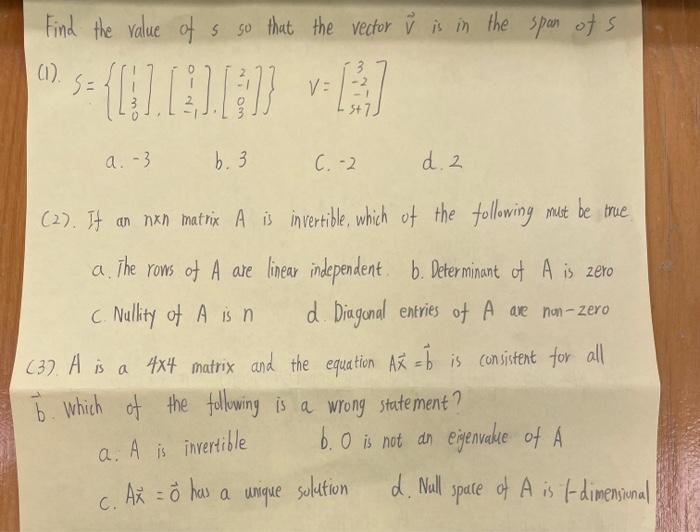 Find the value of s so that the vector v⃗ is in the span of s
(1). S = {[1 1 3 0], [0 1 2 -1], [2 -1 0 3]} V = [3 -2 -1 s+7]
a. -3 b. 3 C. -2 d. 2
(2). If an nxn matrix A is invertible, which of the following must be true
a. The rows of A are linear independent. b. Determinant of A is zero
C. Nullity of A is n d. Diagonal entries of A are non-zero
(3). A is a 4x4 matrix and the equation Ax⃗ = b⃗ is consistent for all
b⃗. Which of the following is a wrong statement?
a. A is invertible b. 0 is not an eigenvalue of A
c. Ax⃗ = 0⃗ has a unique solution d. Null space of A is 1-dimensional